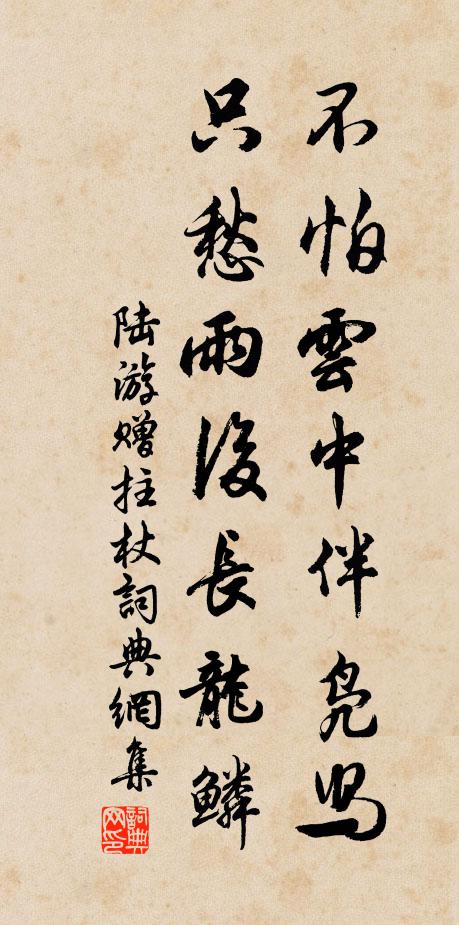 不怕雲中伴鳧舄
只愁雨後長龍鱗
陸游贈拄杖詞典網集
詞典
网印